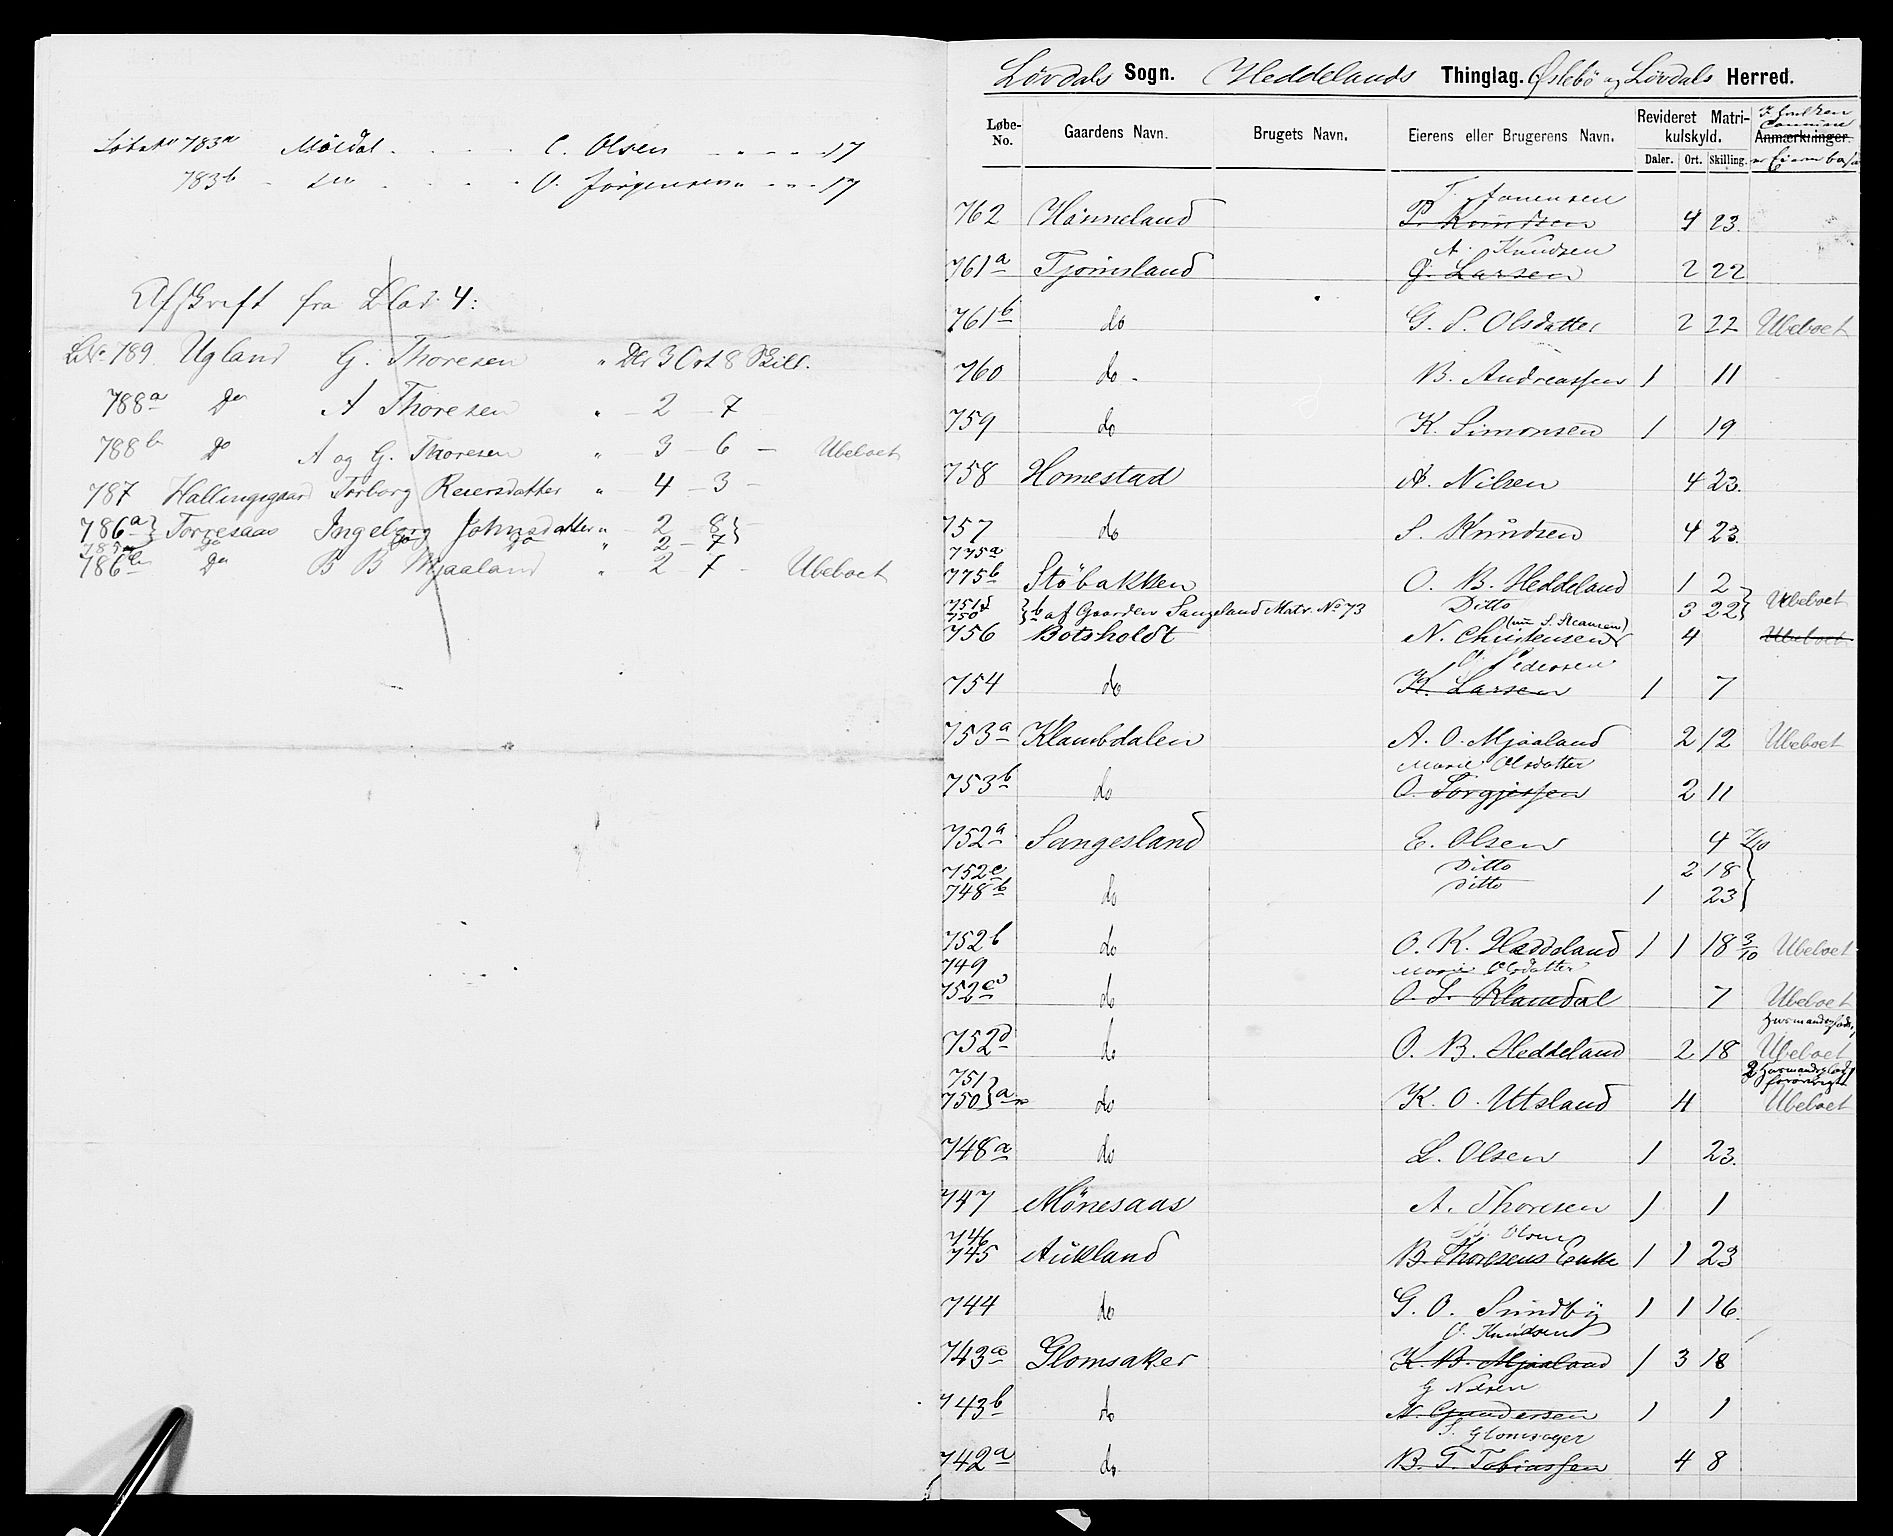 Löbe No 783a Möldal C. Olsen 17
783b do O. Jörgensen 17
Afskrift fra Blad 4:
LNo 789 Ugland G. Thoresen " Dlr 3 Ort 8 Skill.
788a Do A Thoresen " - 2 - 7
788b Do A og G. Thoresen " 3 - 6 - Ubeboet
787 Hallingsgaard Torborg Reiersdatter " 4 - 3 -
786a } Torresaas Ingeborg Johnsdatter " 2 - 8 } -
785a Do Do Do " 2 - 7
786b Do B B Mjaaland " 2 - 7 - Ubeboet
Lövdals Sogn. Heddelands Thinglag. Öslebö og Lövdals Herred.
Løbe-No. Gaardens Navn. Brugets Navn. Eierens eller Brugerens Navn. Revideret Matrikulskyld. Anmærkninger.
Daler. Ort. Skilling.
T. Jonensen
762 Hönneland P. Knudsen 4 23.
A. Knudsen
761a Tjomsland G. Larsen 2 22
761b do G. S. Olsdatter 2 22 Ubeboet
760 do - B. Andreassen 1 11
759 do K. Simonsen 1 19
758 Homestad A. Nilsen 4 23.
757 do S. Knudsen 4 23.
775a
775b Stöbakken O. B. Heddeland 1 2 }
751
750 } b af Gaarden Sangesland Matr. No 73 Ditto 3 22 } Ubeboet
756 Botsholdt N. Christensen 4 Ubeboet
O. Pedersen
754 do K. Larsen 1 7
753a Klambdalen A. O. Mjaaland 2 12 Ubeboet
Marie Olsdatter
753b do O. Torgjersen 2 11
752a Sangesland E. Olsen 4 7/10
752e Ditto 2 18
748b do Ditto 1 23 }
752b do O. K. Heddeland 1 1 18 3/10 Ubeboet
749 Marie Olsdatter
752c do O. T. Klamdal 7 Ubeboet
752d do O. B. Heddeland 2 18 Ubeboet
751
750 } a do K. O. Utsland 4 Ubeboet
748a do L. Olsen 1 23.
747 Mönesaas A. Thoresen 1 1
746 Olsen
745 Aukland B. Thoresens Enke 1 1 23
744 do G. O. Sundby 1 1 16.
O. Knudsen
743a Glomsaker K. B. Mjaaland 1 3 18
G Nilsen
743b do N. Gundersen 1 1
S. Glomsager
742a do B. T. Tobiassen 4 8